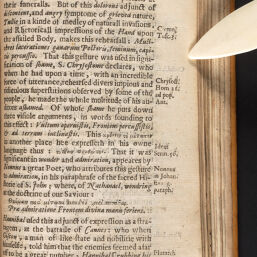 their funeralls. But of this dolorous adjunct of
discontent, and angry symptome of grieved nature,
Tullie in a kinde of medley of naturall invasions,
and Rhetoricall impressions of the Hand upon
the assailed Body, makes this rehearsall:
lacerationes genarum Pectoris, feminum, capi-
tis percussio. That this gesture was used in signi-
fication of shame, S. Chrysostome declares, who
when he had upon a time, with an incredible
force of utterance, rehearsed divers impious and
ridiculous superstitions observed by some of the
people, he made the whole multitude of his au-
ditors ashamed. Of whose shame he puts down
three visible arguments, in words sounding to
this effect: Vultum aperuistis, Frontem percussistis,
& ad terram inclinastis. This
another place hee expressed in his owne
language thus: That it was
significant in wonder and admiration, appeares by
Nonnus a great Poet, who attributes this gesture
to admiration, in his paraphrase of the sacred Hi-
storie of S. John; where, of Nathaniel, wondring
at the doctrine of our Saviour:
Præ admiratione Frontem divina manu feriens,
Hannibal used this adjunct of expression as a stra-
tagem, at the battaile of Cannes: who when
a man of like state and nobilitie with
himselfe, told him that the enemies seemed afar
to be a great number, Hannibal
Chrysost.
Hom.
ad pop.
Ant.
Idem
Nonnus
in Johan.
paraph.